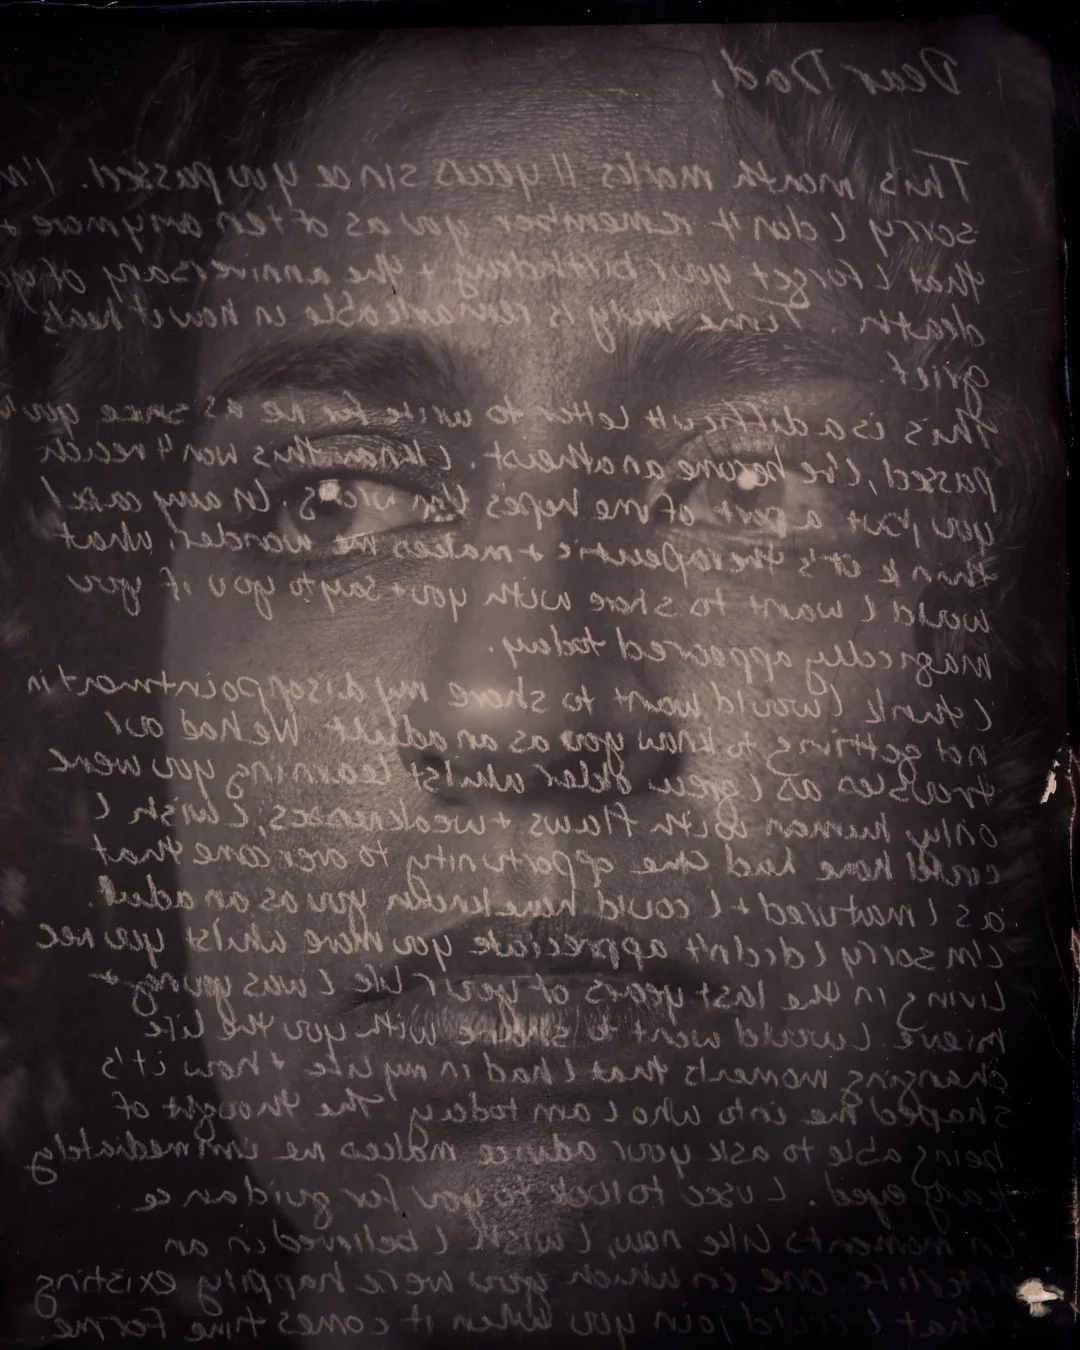 Dear Dad,
This month marks 11 years since you passed. I'm
sorry I don't remember you as often anymore +
that I forget your birthday + the anniversary of your
death. Time truly is remarkable in how it heals
grief.
This is a difficult letter to write for me as since you've
passed, I've become an atheist. I know this won't reach
you but a part of me hopes this In any case I
think it's therapeutic + makes me wonder, what
would I want to share with you + say to you if you
magically appeared today.
I think I would want to share my disappointment in
not getting to know you as an adult. We had our
troubles as I grew older whilst learning you were
only human with flaws + weaknesses, I wish I
could have had the opportunity to over come that
as I matured + I could have known you as an adult.
I'm sorry I didn't appreciate you more whilst you were
living in the last years of your life I was young +
I would want to share with you the life
changing moments that I had in my life + how it's
shaped me into who I am today. The thought of
being able to ask your advice makes me immediately
teary eyed. I used to look to you for guidance
in moments like now, I wish I believed in an
afterlife one in which you were happily existing
that I could join you when it comes time for me